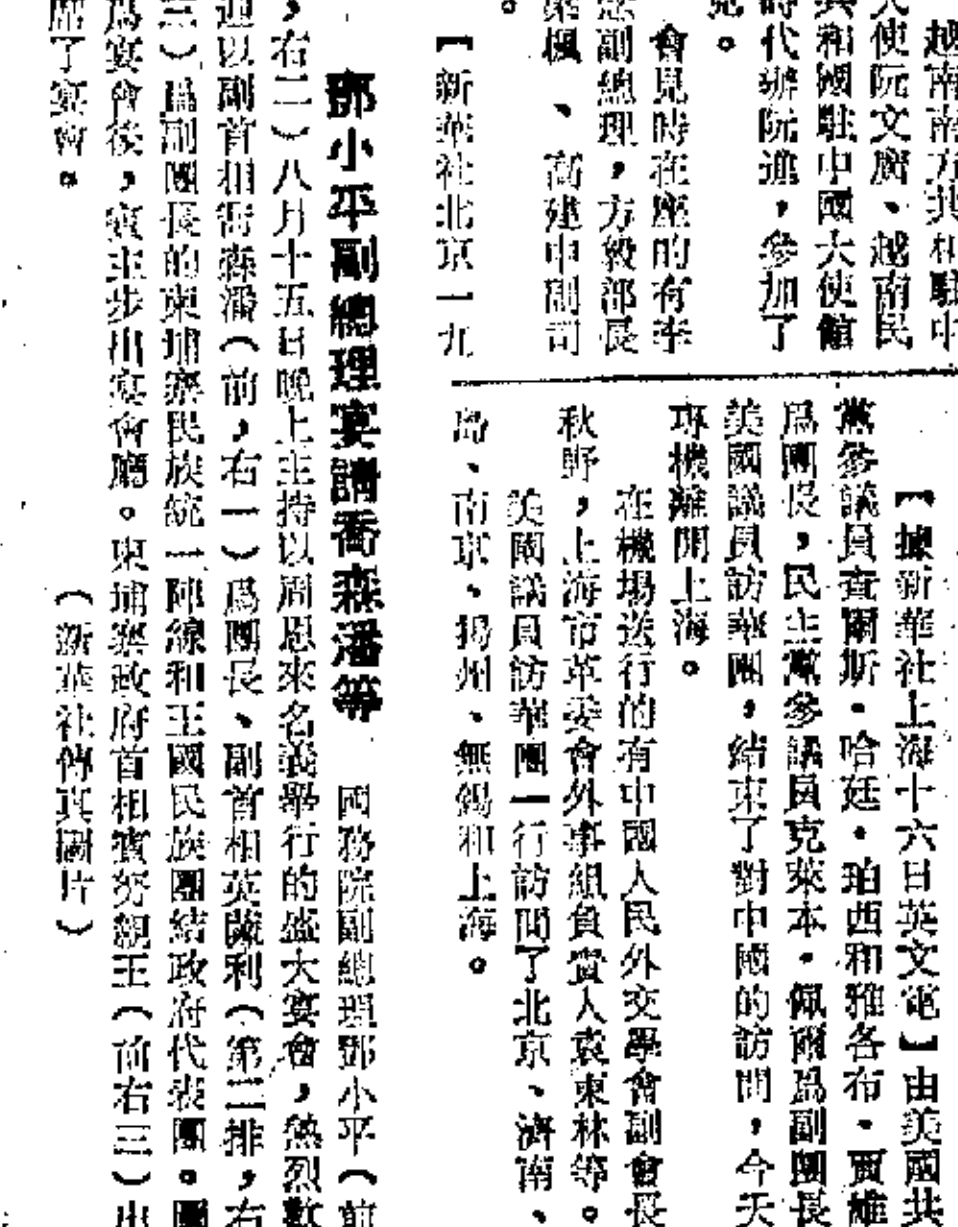 越南南方共和駐中
大使阮文廣、越南民
共和國駐中國大使館
時代辦阮進,參加了
見。
會見時在座的有李
副總理,方毅部長
楓、高建中副司
。
【新華社北京一九
【據新華社上海十六日英文電】由美國共
黨參議員查爾斯·哈廷·珀西和雅各布·賈維
爲團長,民主黨參議員克萊本·佩爾爲副團長
美國議員訪華團,結束了對中國的訪問,今天
專機離開上海。
在機場送行的有中國人民外交學會副會長
秋野,上海市革委會外事組負責人袁東林等。
美國議員訪華團一行訪問了北京、濟南、
島、南京、揚州、無錫和上海。
鄧小平副總理宴請喬森潘等 國務院副總理鄧小平(前
,右二)八月十五日晚上主持以周恩來名義舉行的盛大宴會,熱烈歡
迎以副首相喬森潘(前,右一)爲團長、副首相英薩利(第二排,右
三)爲副團長的柬埔寨民族統一陣線和王國民族團結政府代表團。圖
爲宴會後,賓主步出宴會廳。柬埔寨政府首相賓努親王(前右三)出
席了宴會。 (新華社傳真圖片)